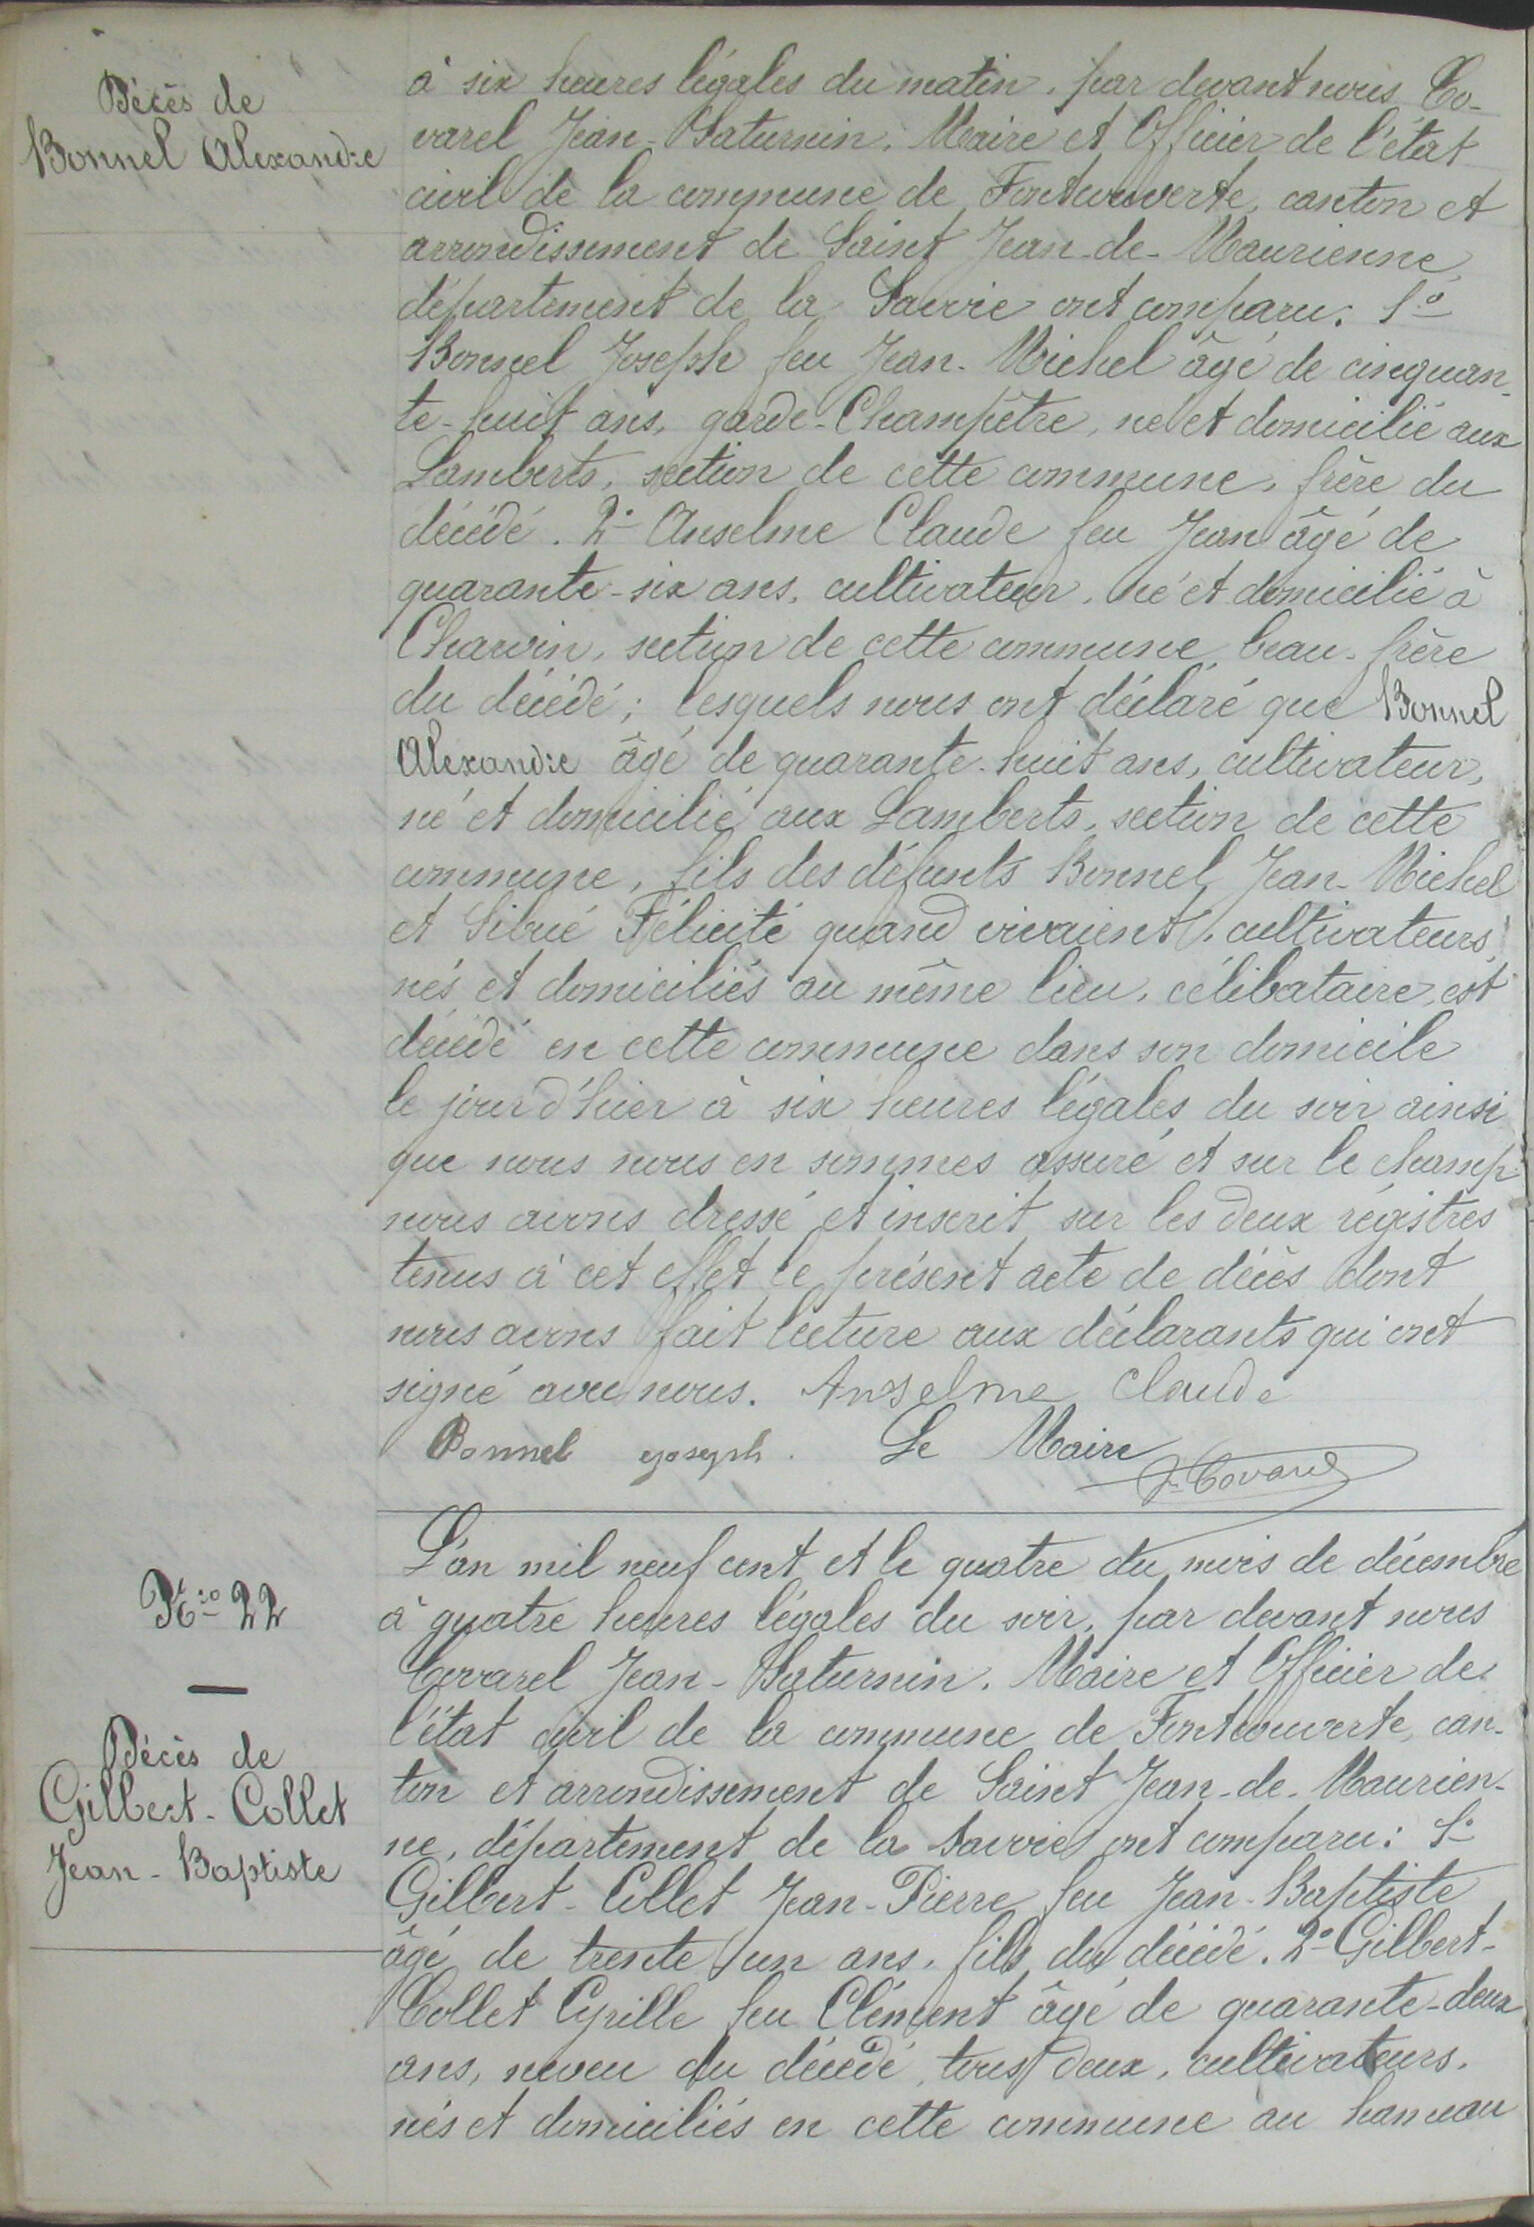 Décès de
Bonnel Alexandre
à six heures légales du matin, par devant nous Co-
varel Jean-Saturnin, Maire et Officier de l'état
civil de la commune de Fontcouverte, canton et
arrondissement de Saint Jean-de-Maurienne,
département de la Savoie ont comparu: 1o
Bonnel Joseph feu Jean-Michel âgé de cinquan-
te-huit ans, garde-Champêtre, né et domicilié aux
Lamberts, section de cette commune, frère du
décédé. 2o Anselme Claude feu Jean âgé de
quarante-six ans, cultivateur, né et domicilié à
Charvin, section de cette commune, beau-frère
du décédé; lesquels nous ont déclaré que Bonnel
Alexandre âgé de quarante-huit ans, cultivateur,
né et domicilié aux Lamberts, section de cette
commune, fils des défunts Bonnel Jean-Michel
et Sibué Félicité quand vivaient, cultivateurs,
nés et domiciliés au même lieu, célibataire, est
décédé en cette commune dans son domicile
le jour d'hier à six heures légales du soir ainsi
que nous nous en sommes assuré et sur le champ
nous avons dressé et inscrit sur les deux régistres
tenus à cet effet le présent acte de décès dont
nous avons fait lecture aux déclarants qui ont
signé avec nous. Anselme Claude
Bonnel joseph. Le Maire
J. Covarel
No 22
Décès de
Gilbert-Collet
Jean-Baptiste
L'an mil neuf cent et le quatre du mois de décembre
à quatre heures légales du soir, par devant nous
Covarel Jean-Saturnin, Maire et Officier de
l'état civil de la commune de Fontcouverte, can-
ton et arrondissement de Saint Jean-de-Maurien-
ne, département de la Savoie ont comparu: 1o
Gilbert-Collet Jean-Pierre feu Jean-Baptiste
âgé de trente un ans, fils du décédé. 2o Gilbert-
Collet Cyrille feu Clément âgé de quarante-deux
ans, neveu du décédé, tous deux, cultivateurs,
nés et domiciliés en cette commune au hameau